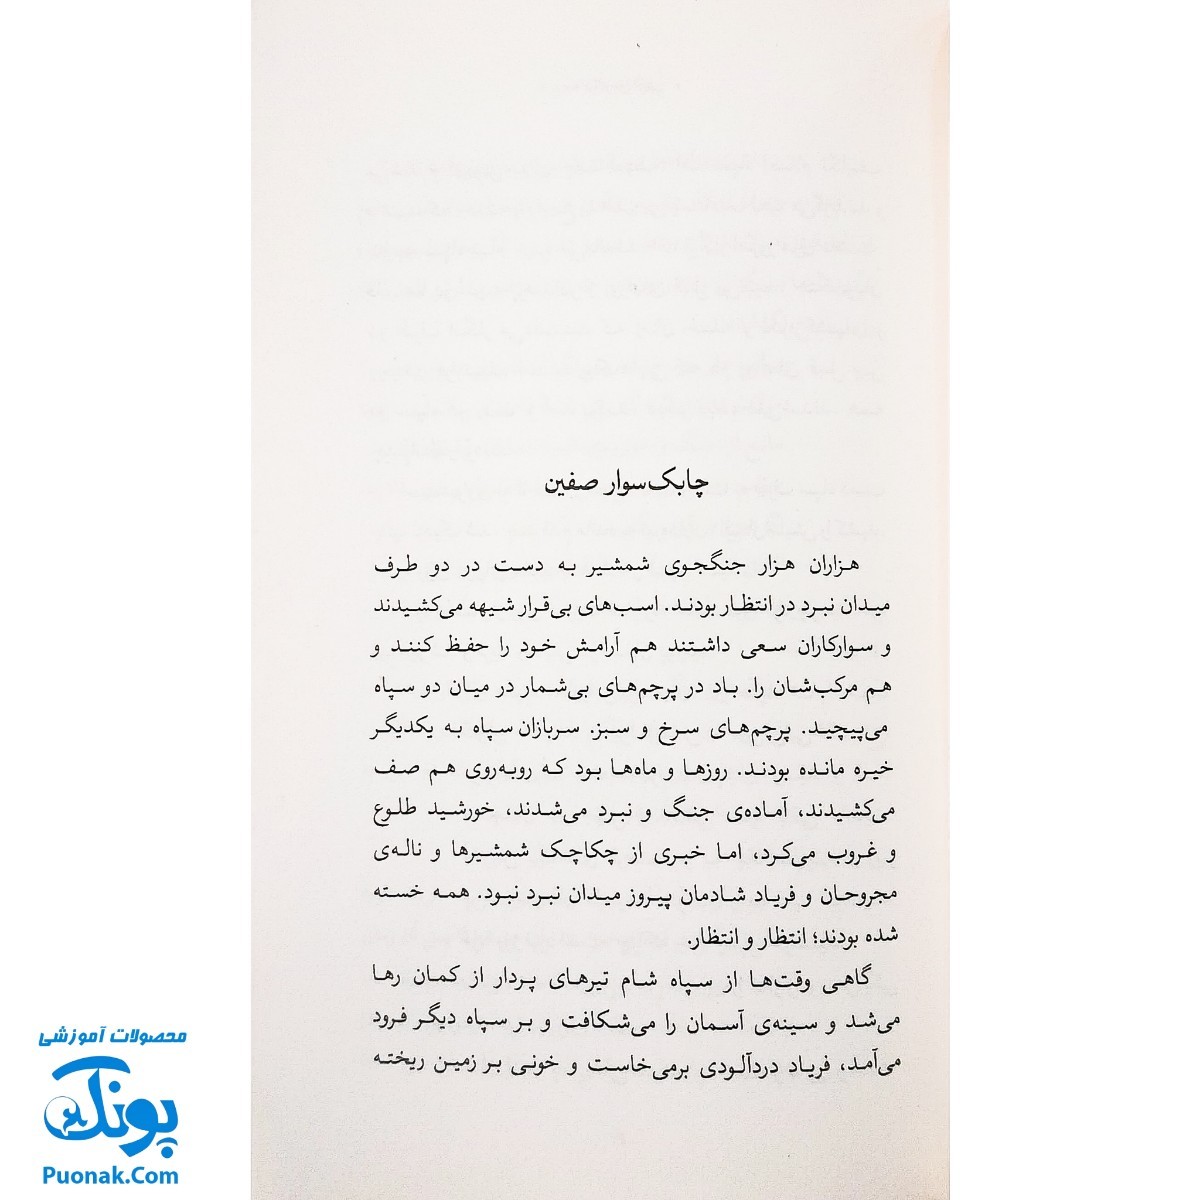 چابک‌سوار صفین
هزاران هزار جنگجوی شمشیر به دست در دو طرف
میدان نبرد در انتظار بودند. اسب‌های بی‌قرار شیهه می‌کشیدند
و سوارکاران سعی داشتند هم آرامش خود را حفظ کنند و
هم مرکب‌شان را. باد در پرچم‌های بی‌شمار در میان دو سپاه
می‌پیچید. پرچم‌های سرخ و سبز. سربازان سپاه به یکدیگر
خیره مانده بودند. روزها و ماه‌ها بود که روبه‌روی هم صف
می‌کشیدند، آماده‌ی جنگ و نبرد می‌شدند، خورشید طلوع
و غروب می‌کرد، اما خبری از چکاچک شمشیرها و ناله‌ی
مجروحان و فریاد شادمان پیروز میدان نبرد نبود. همه خسته
شده بودند؛ انتظار و انتظار.
گاهی وقت‌ها از سپاه شام تیرهای پردار از کمان رها
می‌شد و سینه‌ی آسمان را می‌شکافت و بر سپاه دیگر فرود
می‌آمد، فریاد دردآلودی برمی‌خاست و خونی بر زمین ریخته
محصولات آموزشی
پونک
Puonak.Com